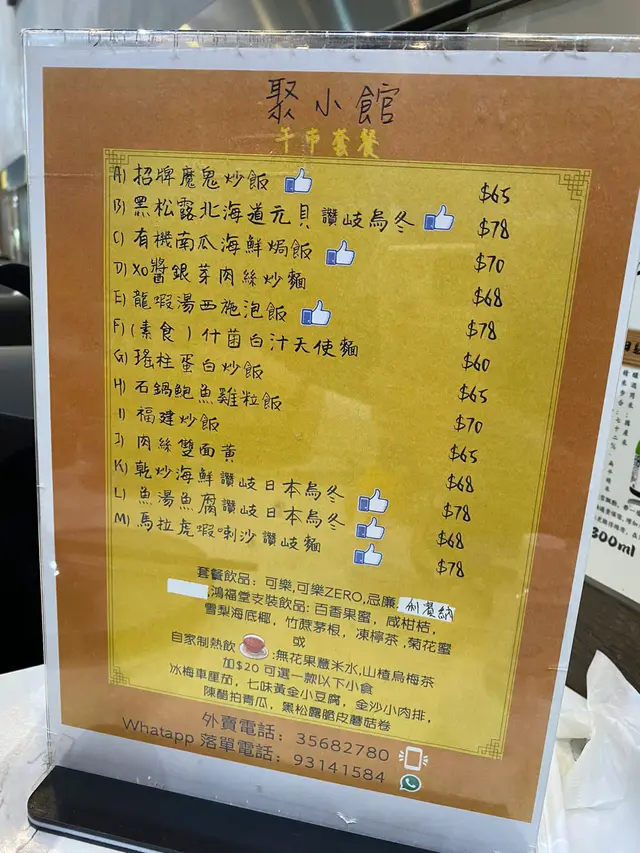 聚小館
午市套餐
A) 招牌魔鬼炒飯 $65
B) 黑松露北海道元貝讚岐烏冬 $78
C) 有機南瓜海鮮焗飯 $70
D) XO醬銀芽肉絲炒麵 $68
E) 龍蝦湯西施泡飯 $78
F) (素食) 什菌白汁天使麵 $60
G) 瑤柱蛋白炒飯 $65
H) 石鍋鮑魚雞粒飯 $70
I) 福建炒飯 $65
J) 肉絲雙面黃 $68
K) 乾炒海鮮讚岐日本烏冬 $78
L) 魚湯魚腐讚岐日本烏冬 $68
M) 馬拉虎蝦喇沙讚岐麵 $78
套餐飲品: 可樂,可樂ZERO,忌廉,利賓納
鴻福堂支裝飲品: 百香果蜜, 咸柑桔,
雪梨海底椰, 竹蔗茅根, 凍檸茶,菊花蜜
或
自家制熱飲 :無花果薏米水,山楂烏梅茶
加$20 可選一款以下小食
冰梅車厘茄, 七味黃金小豆腐, 金沙小肉排,
陳醋拍青瓜, 黑松露脆皮蘑菇卷
外賣電話: 35682780
Whatapp 落單電話: 93141584
300ml